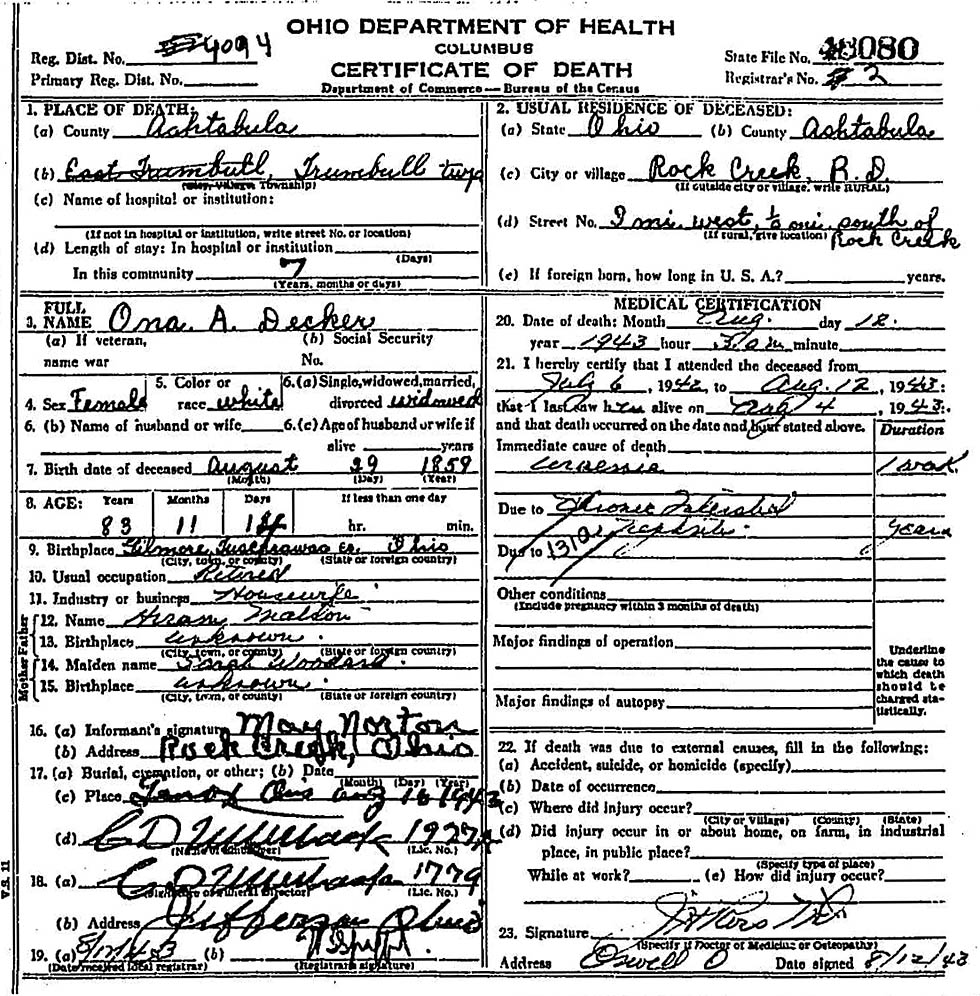 OHIO DEPARTMENT OF HEALTH
COLUMBUS
CERTIFICATE OF DEATH
Department of Commerce — Bureau of the Census
Reg. Dist. No. 4094
Primary Reg. Dist. No.
State File No. 3080
Registrar's No. 2
1. PLACE OF DEATH:
(a) County Ashtabula
(b) East Trumbull, Trumbull twp
Township)
(c) Name of hospital or institution:
(If not in hospital or institution, write street No. or location)
(d) Length of stay: In hospital or institution
(Days)
In this community 7
(Years, months or days)
2. USUAL RESIDENCE OF DECEASED:
(a) State Ohio (b) County Ashtabula
(c) City or village Rock Creek, R.D.
(If outside city or village, write RURAL)
(d) Street No. 1 mi. west, 1/2 mi. south of
(If rural, give location) Rock Creek
(e) If foreign born, how long in U. S. A.? years.
3. FULL NAME Ona. A. Decker
(a) If veteran, name war
(b) Social Security No.
4. Sex Female
5. Color or race white
6. (a) Single, widowed, married, divorced widowed
6. (b) Name of husband or wife
6. (c) Age of husband or wife if alive years
7. Birth date of deceased August 29 1859
(Month) (Day) (Year)
8. AGE: Years Months Days If less than one day
83 11 14 hr. min.
9. Birthplace Gilmore, Tuscarawas co. Ohio
(City, town, or county) (State or foreign country)
10. Usual occupation Retired
11. Industry or business Housewife
Father
12. Name Hiram
13. Birthplace unknown.
(City, town, or county) (State or foreign country)
Mother
14. Maiden name Sarah Woodard
15. Birthplace unknown.
(City, town, or county) (State or foreign country)
16. (a) Informant's signature May Norton
(b) Address Rock Creek, Ohio
17. (a) Burial, cremation, or other; (b) Date
(Month) (Day) (Year)
(c) Place Lenox Ohio Aug 16 1943
(d) C D 1927A
(Lic. No.)
18. (a) C D 1779
(Signature of Funeral Director) (Lic. No.)
(b) Address Jefferson Ohio
19. (a) 8/12/43 (b)
(Date received local registrar) (Registrar's signature)
V.S. 11
MEDICAL CERTIFICATION
20. Date of death: Month Aug. day 12.
year 1943 hour 3 a m minute
21. I hereby certify that I attended the deceased from
July 6, 1942, to Aug. 12, 1943:
that I last saw her alive on Aug 4, 1943.
and that death occurred on the date and hour stated above.
Duration
Immediate cause of death
Uremia 1 week
Due to Chronic Interstitial
Nephritis. years
Due to 131a
Other conditions
(Include pregnancy within 3 months of death)
Major findings of operation
Major findings of autopsy
Underline the cause to which death should be charged statistically.
22. If death was due to external causes, fill in the following:
(a) Accident, suicide, or homicide (specify)
(b) Date of occurrence
(c) Where did injury occur?
(City or Village) (County) (State)
(d) Did injury occur in or about home, on farm, in industrial
place, in public place?
(Specify type of place)
While at work? (e) How did injury occur?
23. Signature
(Specify if Doctor of Medicine or Osteopathy)
Address Orwell O Date signed 8/12/43